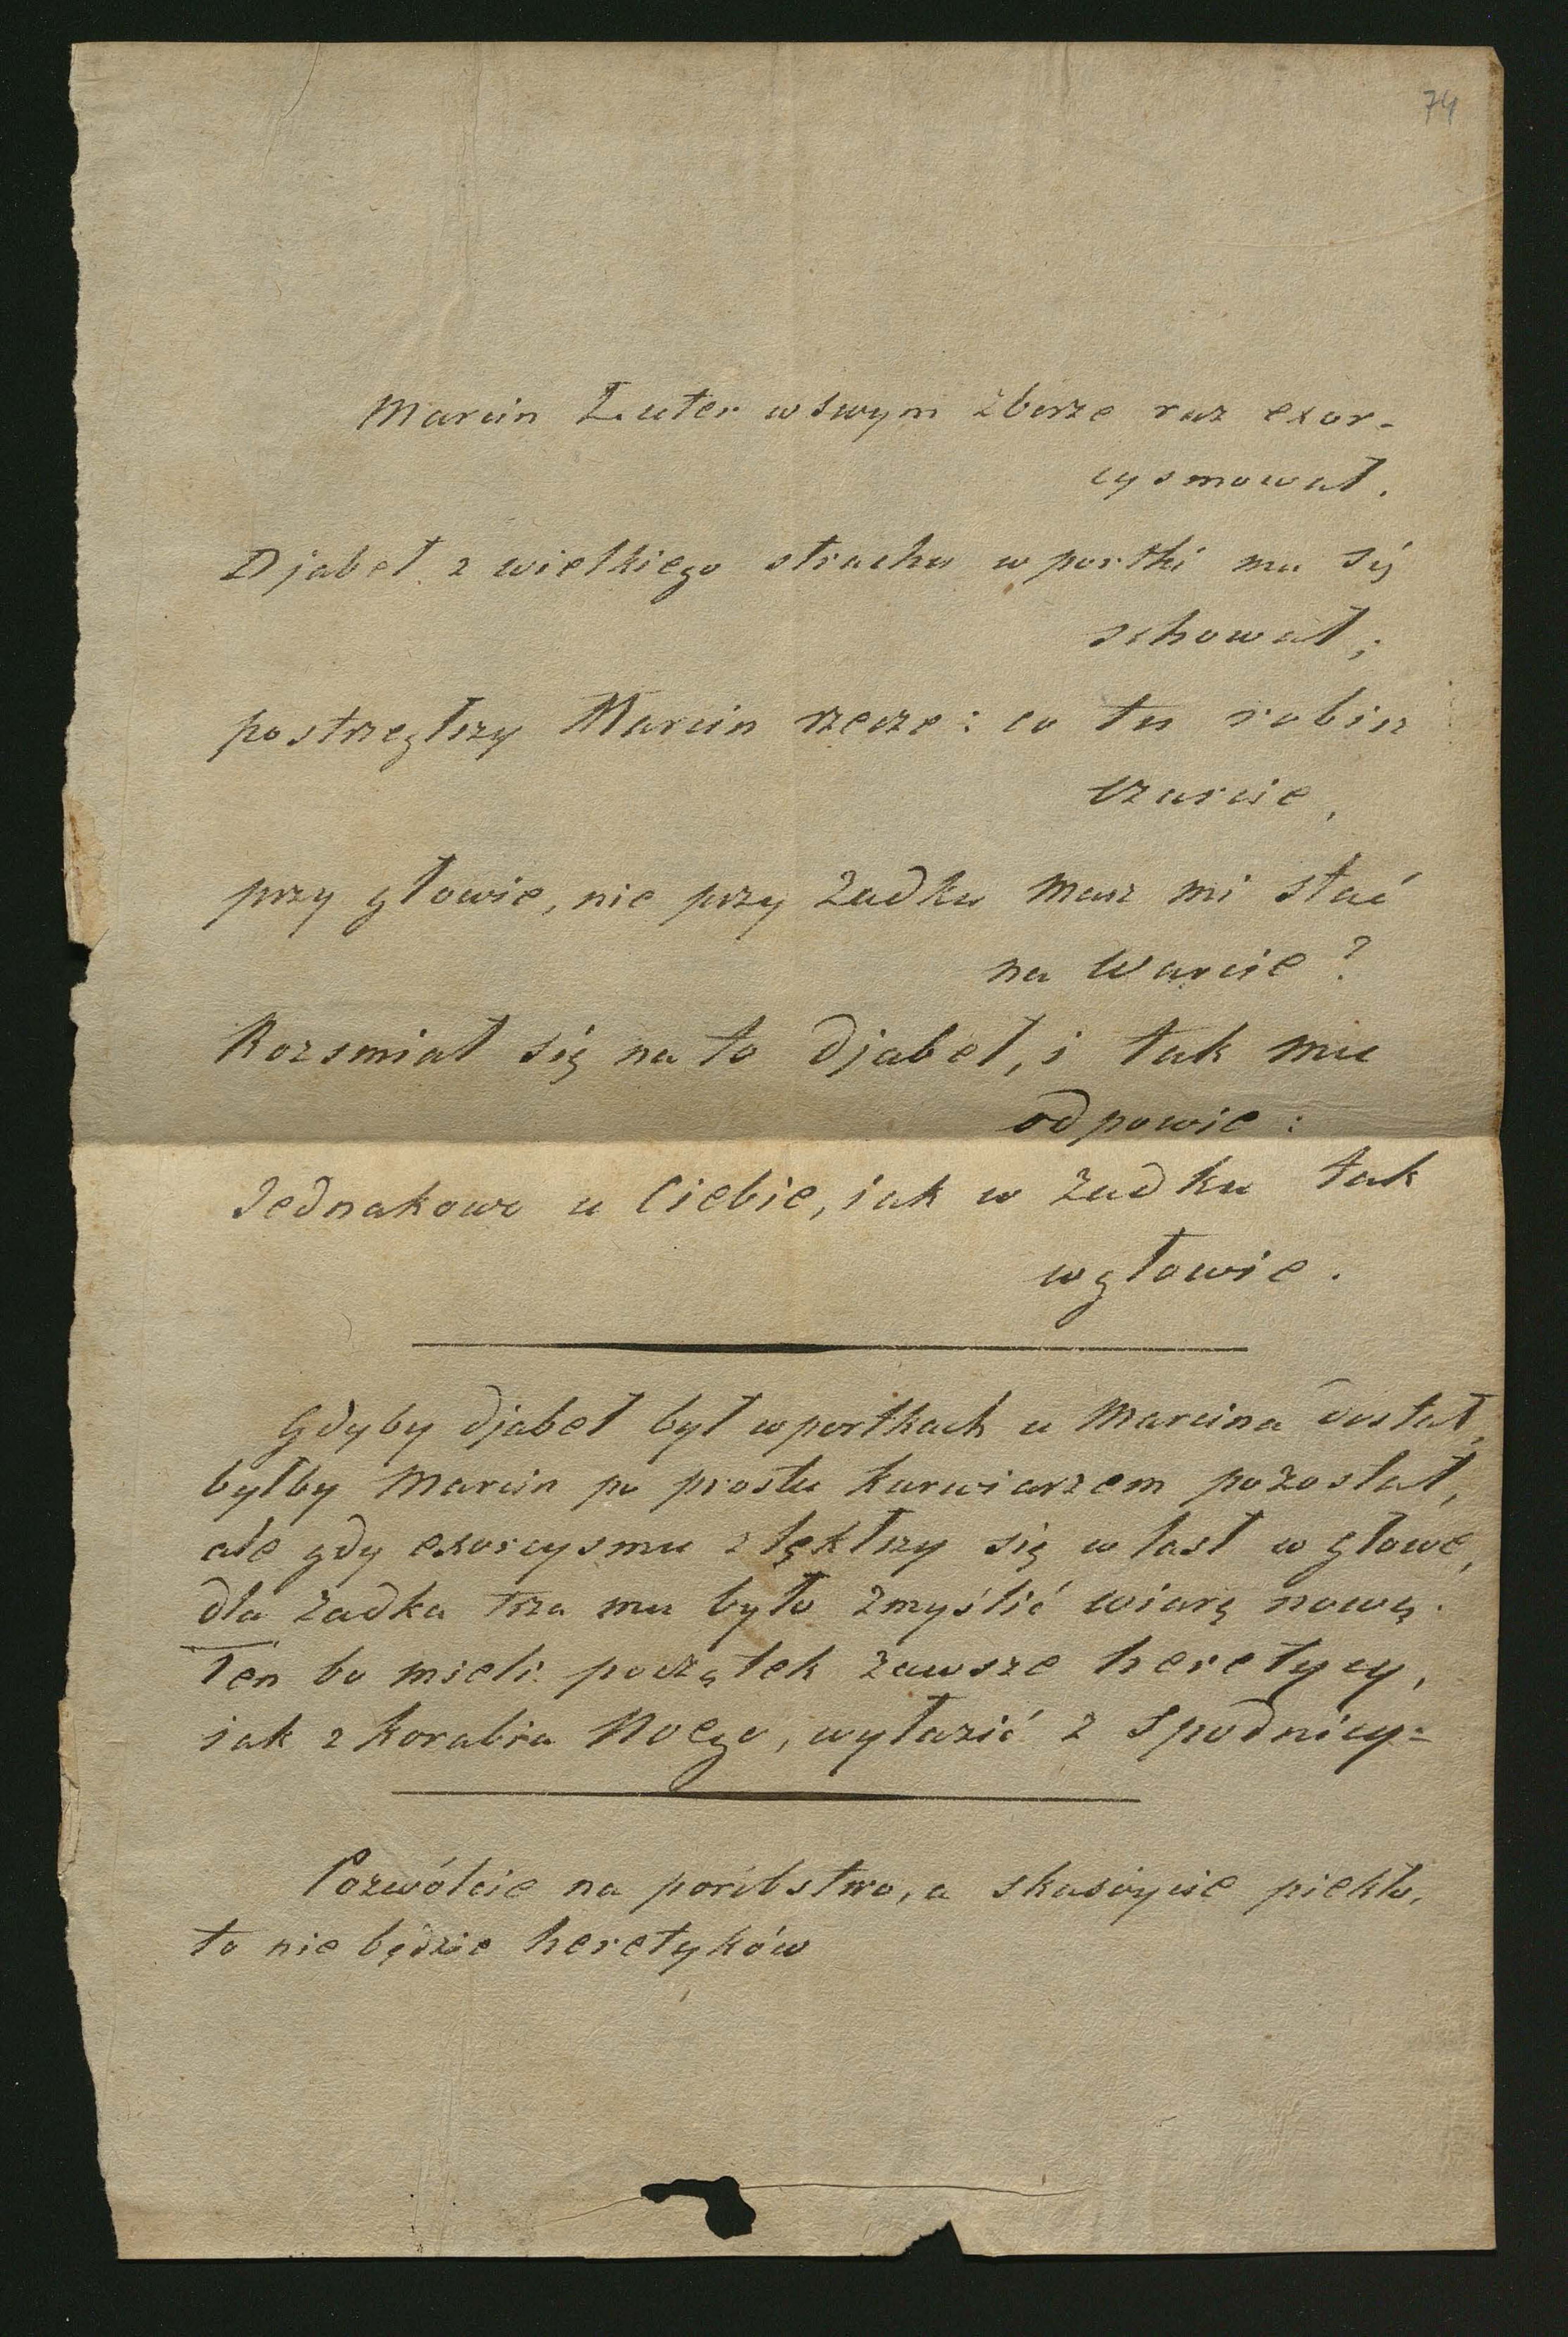 74
Marcin Luter w swym zborze raz exor-
cysmował.
Djabeł z wielkiego strachu w portki mu się
schował;
postrzegłszy Marcin rzecze: co tu robisz
czarcie,
przy głowie, nie przy zadku masz mi stać
na warcie?
Rozsmiał się na to djabeł, i tak mu
odpowie:
Jednakowo u Ciebie, iak w zadku tak
w głowie.
Gdyby djabeł był w portkach u Marcina dostał,
byłby Marcin po prostu kurwiarzem pozostał,
ale gdy exorcysmu zlękłszy się wlasł w głowę,
dla zadka trza mu było zmyślić wiarę nową.
Ten bo mieli początek zawsze heretycy,
iak z korabia Noego, wyłazić z spodnicy=
Pozwólcie na porubstwo, a skasuycie piekło,
to nie będzie heretyków